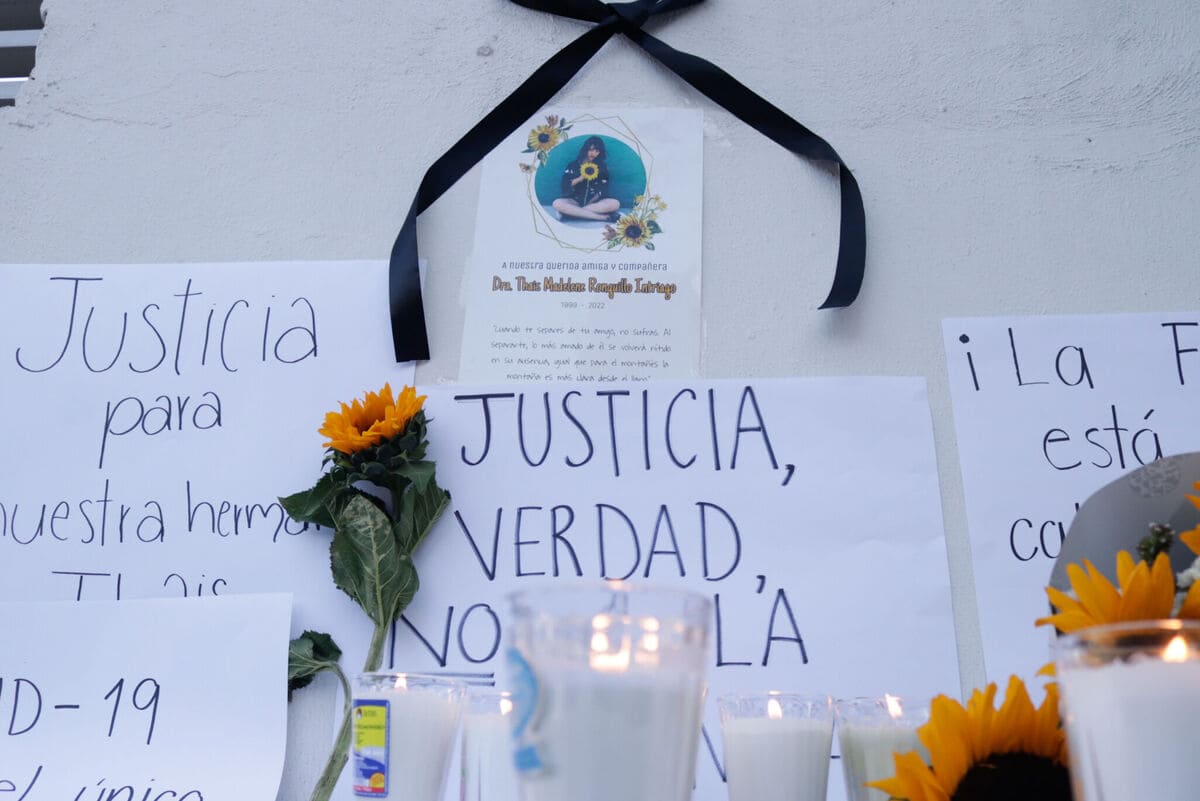 A nuestra querida amiga y compañera
Dra. Thais Madelene Ronquillo Intriago
1999 - 2022
"Cuando te separes de tu amigo, no sufras. Al
separarte, lo más amado de él se volverá nítido
en su ausencia, igual que para el montañés la
montaña es más clara desde el llano"
Justicia
para
nuestra herma
Thais
D-19
el único
JUSTICIA,
VERDAD,
NO LA
¡La F
está
ca